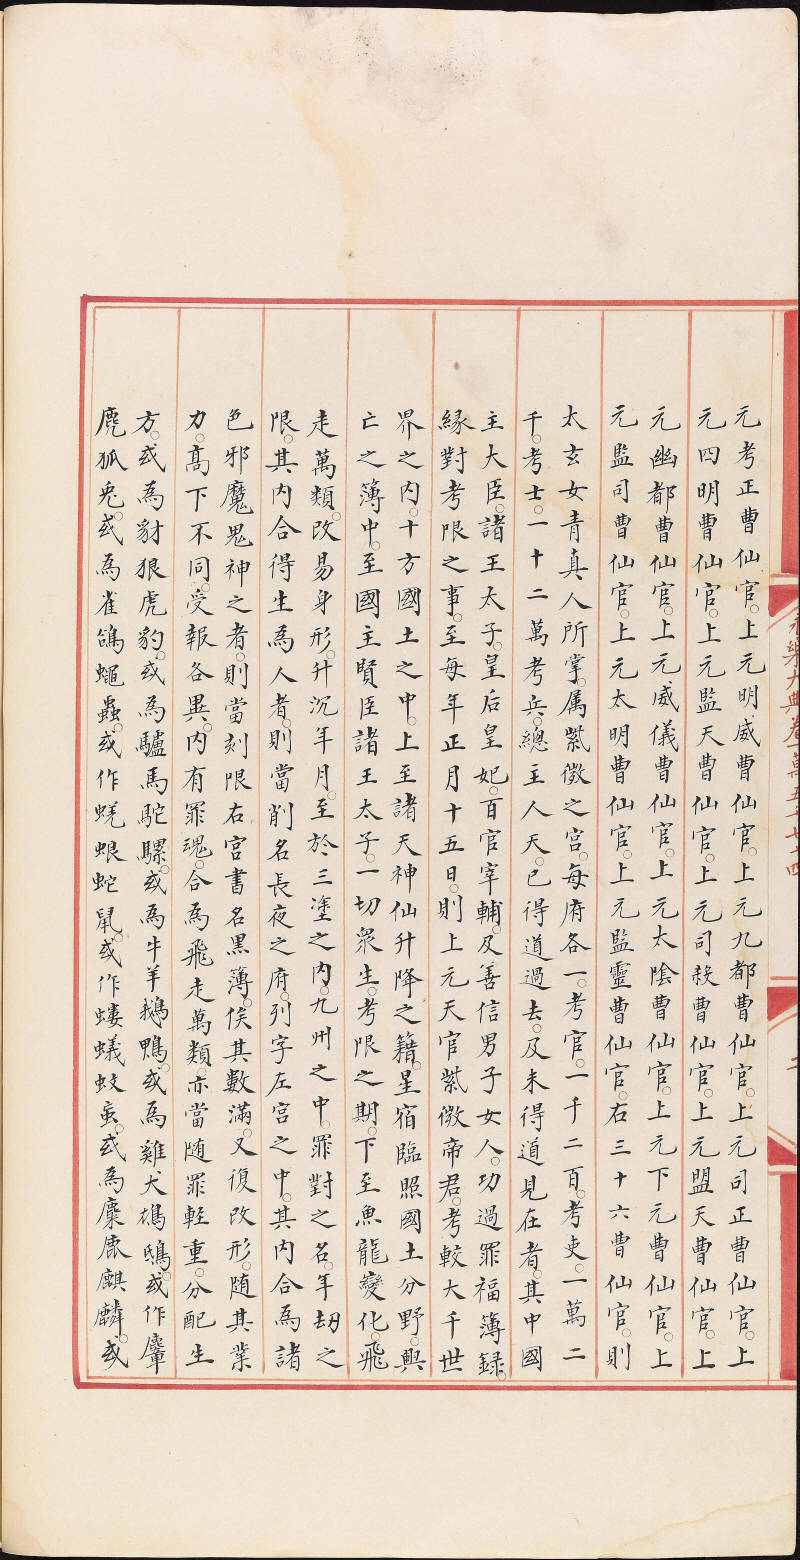 永樂大典卷一萬五千七十四
元考正曹仙官。上元明威曹仙官。上元九都曹仙官。上元司正曹仙官。上
元四明曹仙官。上元監天曹仙官。上元司殺曹仙官。上元盟天曹仙官。上
元幽都曹仙官。上元威儀曹仙官。上元太陰曹仙官。上元下元曹仙官。上
元監司曹仙官。上元太明曹仙官。上元監靈曹仙官。右三十六曹仙官。則
太玄女青真人所掌。属紫微之宫。每府各一。考官。一千二百。考吏。一萬二
千。考士。一十二萬考兵。總主人天。已得道過去。及未得道見在者。其中國
主大臣。諸王太子。皇后皇妃。百官宰輔。及善信男子女人。功過罪福簿録。
緣對考限之事。至每年正月十五日。則上元天官紫微帝君。考較大千世
界之内。十方國土之中。上至諸天神仙升降之籍。星宿臨照國土分野。興
亡之簿中。至國主賢臣諸王太子。一切衆生。考限之期。下至魚龍變化。飛
走萬類。改易身形。升沉年月。至於三塗之内。九州之中。罪對之名。年劫之
限。其内合得生為人者。則當削名長夜之府。列字左宫之中。其内合為諸
色邪魔鬼神之者。則當刻限右宫書名黑簿。俟其數滿。又復改形。随其業
力。高下不同。受報各異。内有罪魂。合為飛走萬類。亦當随罪輕重。分配生
方。或為豺狼虎豹。或為驢馬駝騾。或為牛羊鵝鴨。或為雞犬鴆鴟。或作麞
麂狐兎。或為雀鴿蠅蟲。或作蜣蜋蛇鼠。或作螻蟻蚊䖟。或為麋鹿麒麟。或